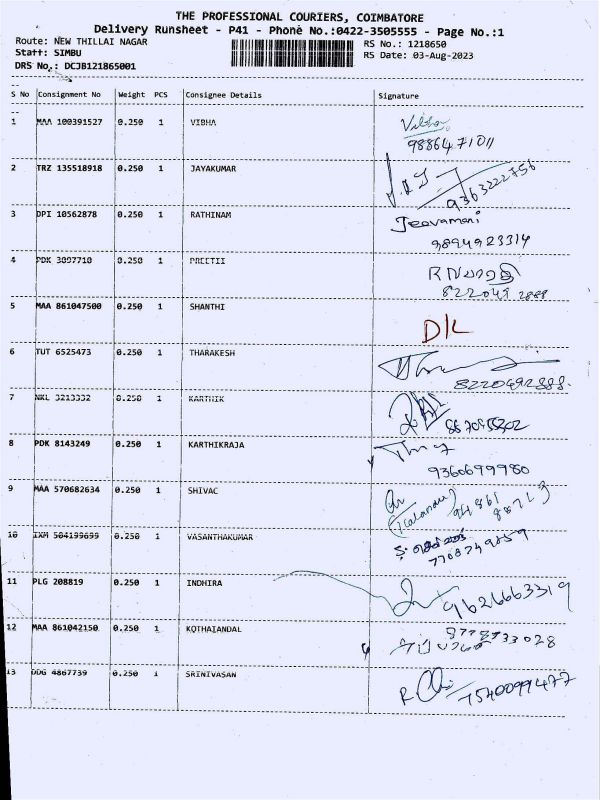 THE PROFESSIONAL COURIERS, COIMBATORE
Delivery Runsheet - P41 - Phone No.:0422-3505555 - Page No.:1
Route: NEW THILLAI NAGAR RS No.: 1218650
Staff: SIMBU RS Date: 03-Aug-2023
DRS No.: DCJB121865001
S No Consignment No Weight PCS Consignee Details Signature
1 MAA 100391527 0.250 1 VIBHA Vibha
9886471011
2 TRZ 135518918 0.250 1 JAYAKUMAR 9363222756
3 DPI 10562878 0.250 1 RATHINAM Jeevamani
9894923314
4 PDK 3097710 0.250 1 PREETII
8220492888
5 MAA 861047500 0.250 1 SHANTHI D/L
6 TUT 6525473 0.250 1 THARAKESH
8220492888.
7 NKL 3213332 0.250 1 KARTHIK
8 PDK 8143249 0.250 1 KARTHIKRAJA
9360699980
9 MAA 570682634 0.250 1 SHIVAC
10 IXM 504199699 0.250 1 VASANTHAKUMAR
7708749859
11 PLG 208819 0.250 1 INDHIRA 9626663319
12 MAA 861042150 0.250 1 KOTHAIANDAL
13 DDG 4867739 0.250 1 SRINIVASAN
7540099477